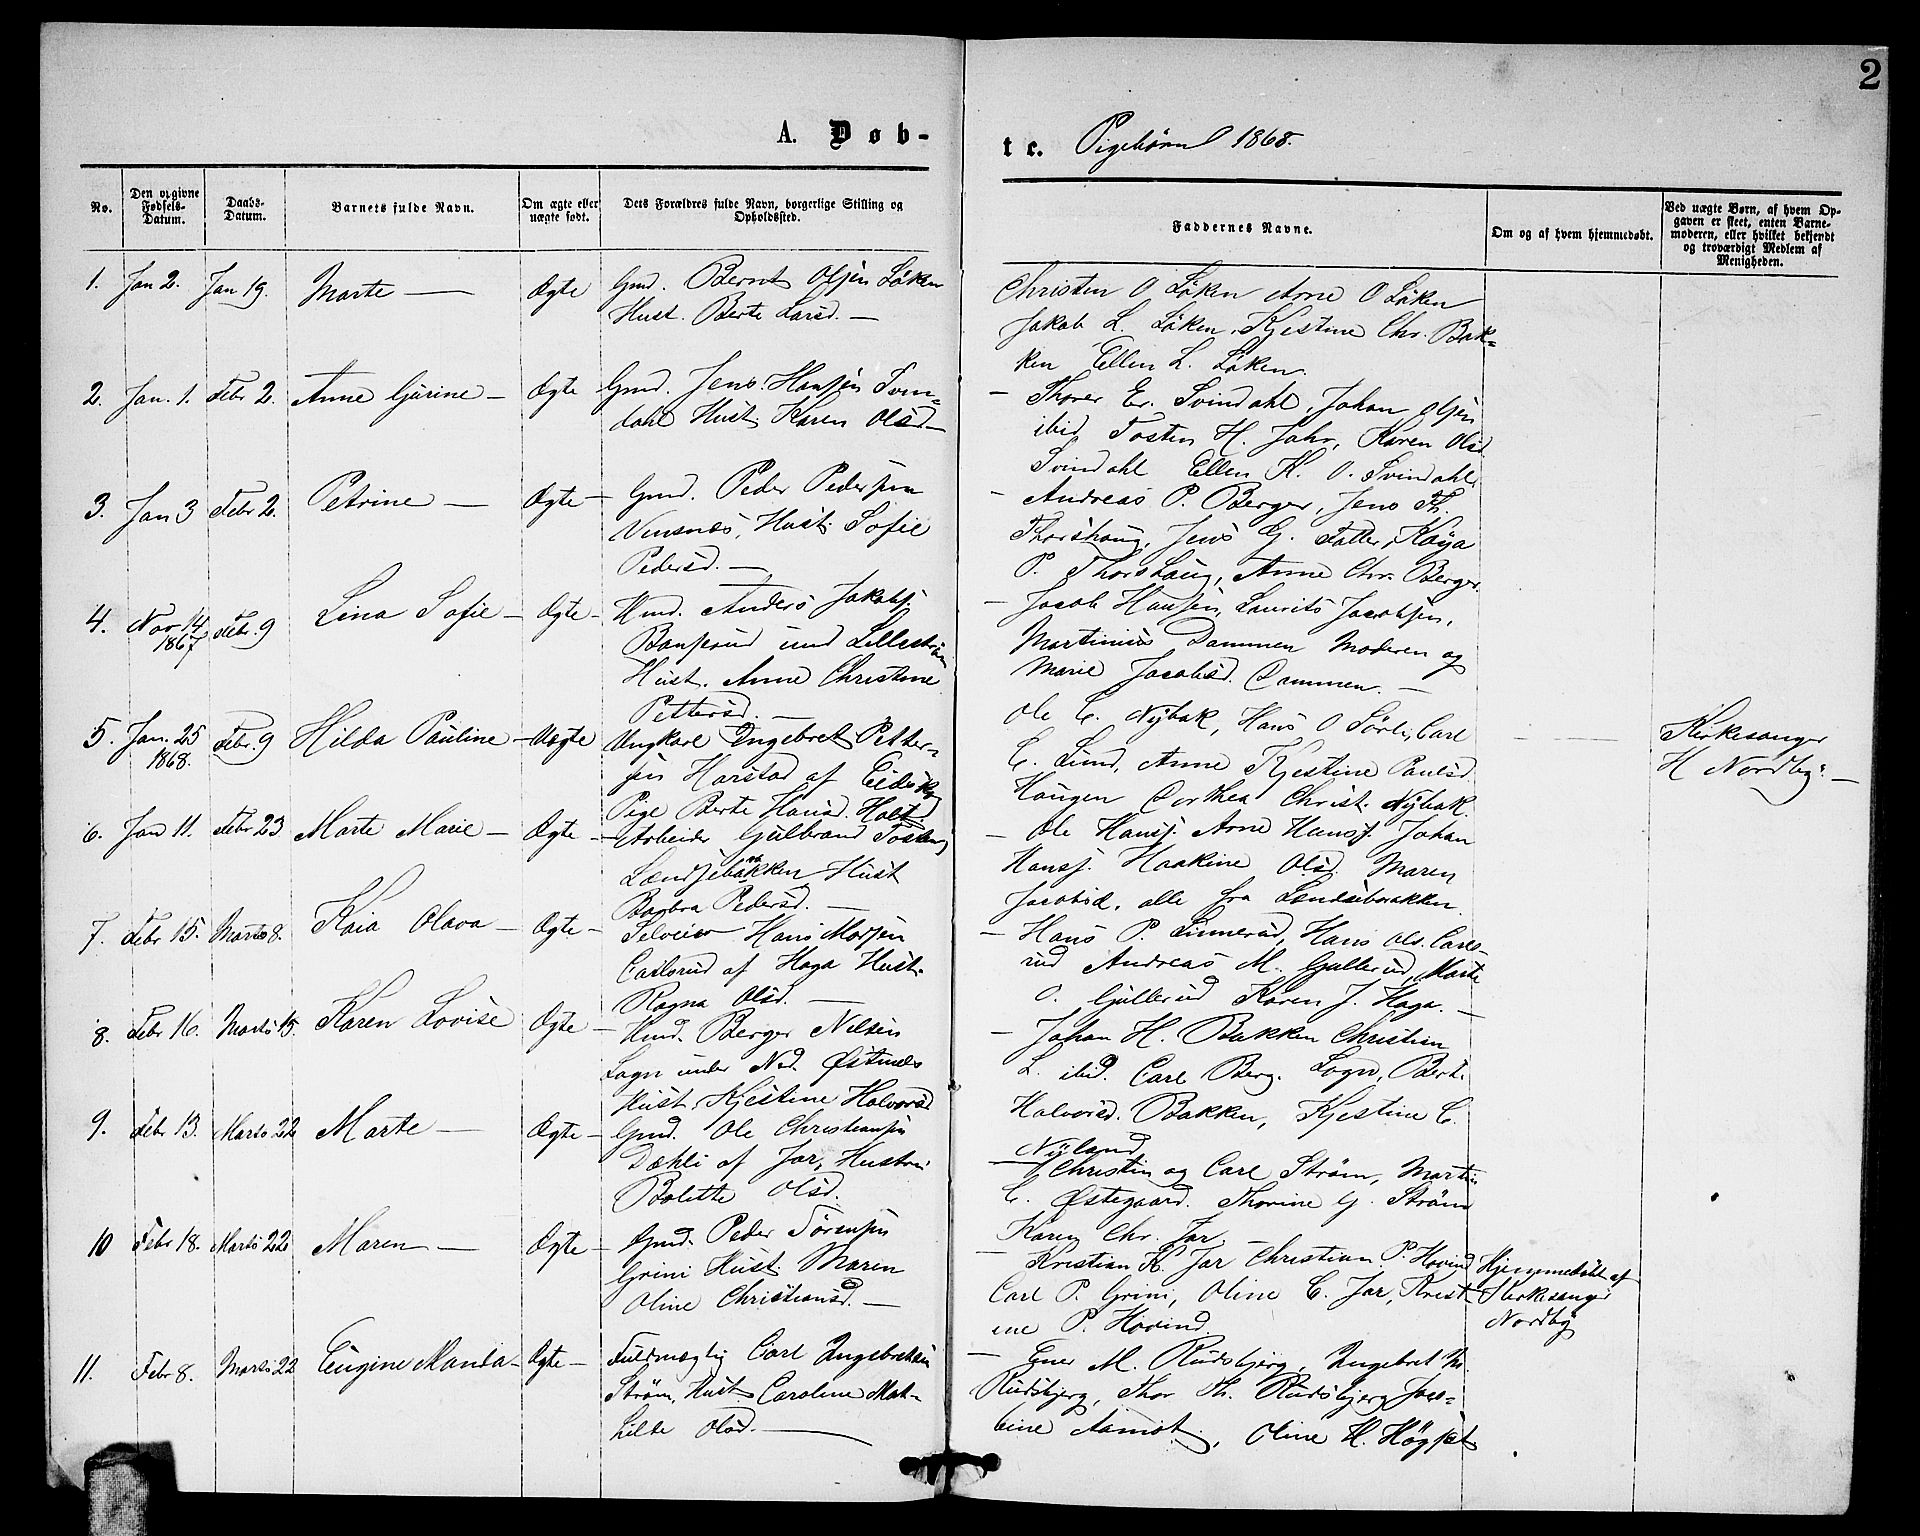 2
A. Døb-
te. Pigebørn 1868.
No.
Den opgivne Fødsels-Datum.
Daabs-Datum.
Barnets fulde Navn.
Om ægte eller uægte født.
Dets Forældres fulde Navn, borgerlige Stilling og Opholdssted.
Faddernes Navne.
Om og af hvem hjemmedøbt.
Ved uægte Børn, af hvem Opgaven er skeet, enten Barnemoderen, eller hvilket bekjendt og troværdigt Medlem af Menigheden.
1. Jan 2. Jan 19. Marte — Ægte
Gmd. Bernt Olsen Løken
Hust. Berte Larsd. —
Christen O Løken Arne O Løken
Jakob L. Løken, Kjestine Chr. Bak-
ken Ellen L. Løken.
2. Jan. 1. Febr 2. Anne Gurine — Ægte
Gmd. Jens Hansen Svin-
dahl Hust. Karen Olsd —
— Thorer Er. Svindahl, Johan Olsen
ibid, Tosten H. Jahr, Karen Olsd
Svindahl Ellen K. O. Svindahl.
3. Jan 3 Febr 2. Petrine — Ægte —
Gmd. Peder Pedersen
Vensnæs, Hust. Sofie
Pedersd. —
— Andreas P. Berger, Jens Th.
Thorshaug, Jens G. Fatter, Kaja
P. Thorshaug, Anne Chr. Berger
4. Nov. 14 1867 Febr. 9 Lina Sofie — Ægte —
Hmd. Anders Jakobs.
und Lillestrøm
Hust. Anne Christine
Pettersd. —
— Jacob Hansen, Laurits Jacobsen,
Martinius Dammen Moderen og
Marie Jacobsd. Dammen. —
5. Jan. 25 1868. Febr. 9 Hilda Pauline — Uægte
Ungkarl Engebret Petter-
sen Harstad af Eidskog
Pige Berte Hansd. Holt
Ole C. Nybak, Hans O Sørli, Carl
C. Lund, Anne Kjestine Paulsd.
Haugen Dorthea Christ. Nybak.
Kirkesanger
H Nordby. —
6. Jan 11. Febr 23 Marte Marie — Ægte —
Arbeider Gulbrand Tostens
Lændsebakken Hust
Barbra Pedersd. —
— Ole Hanss. Arne Hanss. Johan
Hanss. Haakine Olsd. Maren
Jacobsd. alle fra Lændsebakken.
7. Febr 15. Marts 8. Kaia Olava — Ægte —
Selveier Hans Morsen
Carlsrud af Haga Hust.
Ragna Olsd. —
— Hans P. Linnerud, Hans Ols. Carls-
rud Andreas M. Gullerud, Marte
O. Gullerud Karen J. Haga. —
8. Febr 16. Marts 15. Karen Lovise Ægte —
Hmd. Berger Nilsen
Logn under Nd. Østnes
Hust. Kjestine Halvorsd
— Johan H. Bakken Christian
L. ibid. Carl Berg. Logn, Bert.
Halvorsd. Bakken, Kjestine C.
Nyland
9. Febr 13. Marts 22 Marte — Ægte —
Gmd. Ole Christiansen
Dæhli af Jar, Hustru
Bolette Olsd.
— Christen og Carl Strøm, Martin
C. Østegaard. Thorine G. Strøm
Karen Chr. Jar.
10 Febr 18. Marts 22. Maren — Ægte —
Gmd. Peder Sørensen
Grini Hust. Maren
Oline Christiansd. —
— Kristian K. Jar Christian P. Hovind
Carl P. Grini, Oline C. Jar, Krist-
ine P. Hovind.
Hjemmedøbt af
Kirkesanger
Nordby
11. Febr 8. Marts 22 Eugine Manda — Ægte —
Fuldmægtig Carl Ingebretsen
Strøm, Hust. Caroline Mat-
hilde Olsd. —
— Ener M. Rudsbjerg, Ingebret M.
Rudsbjerg, Thor Th. Rudsbjerg, Jaco-
bine Aamot, Oline H. Høgset